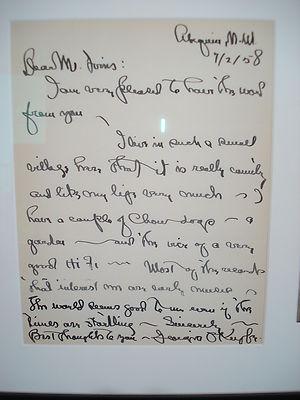 Abiquiu N.M.
7/2/58
Dear Mr. Ivins:
I am very pleased to have the word
from you
I live in such a small
village here that it is really country
and like my life very much ~ I
have a couple of Chow dogs ~ a
garden ~ and the use of a very
good Hi Fi ~ Most of the records
that interest me are early music ~
The world seems good to me even if the
times are startling ~ Sincerely ~
Best thoughts to you ~ Georgia O'Keeffe